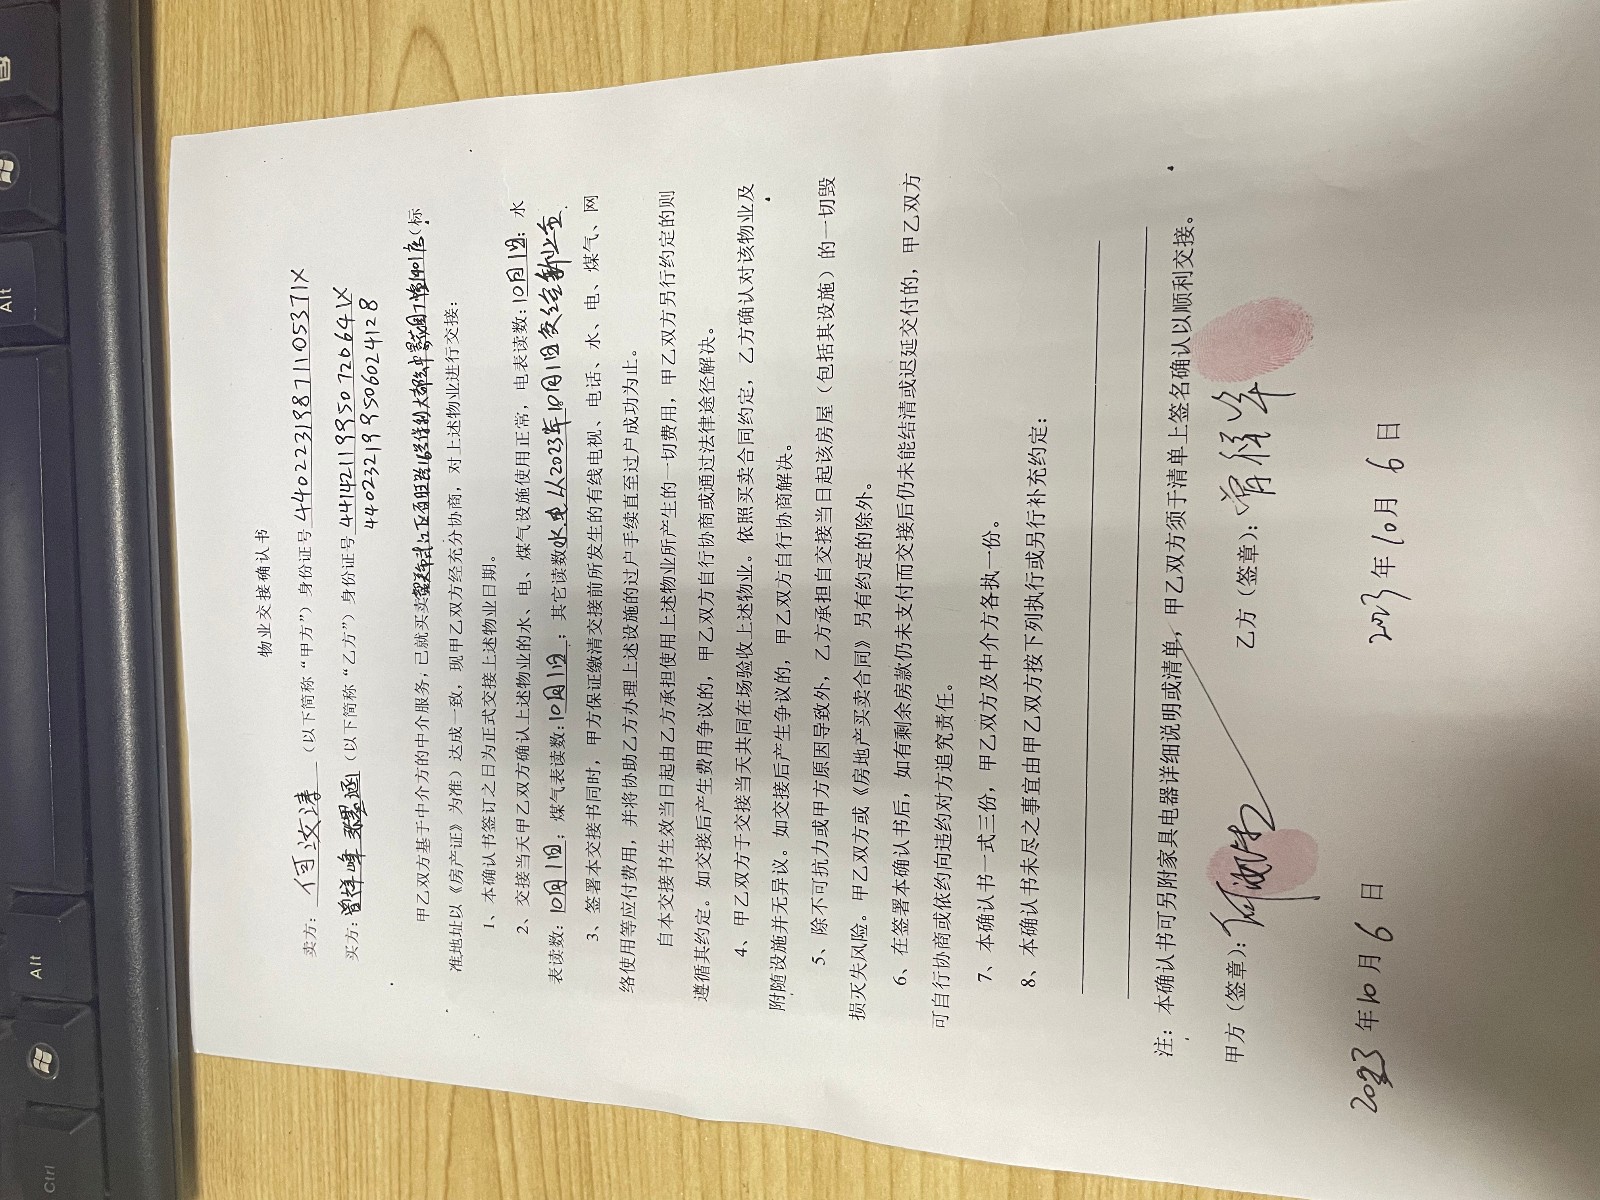 物业交接确认书
卖方：何汝清（以下简称“甲方”）身份证号 44022319871105371X
买方：曾祥峰（以下简称“乙方”）身份证号 44142119950720641X
440232199506024128
甲乙双方基于中介方的中介服务，已就买卖（标
准地址以《房产证》为准）达成一致，现甲乙双方经充分协商，对上述物业进行交接：
1、本确认书签订之日为正式交接上述物业日期。
2、交接当天甲乙双方确认上述物业的水、电、煤气设施使用正常，电表读数：10月1日；水
表读数：10月1日；煤气表读数：10月1日；其它读数水电从2023年10月1日交给新业主
3、签署本交接书同时，甲方保证缴清交接前所发生的有线电视、电话、水、电、煤气、网
络使用等应付费用，并将协助乙方办理上述设施的过户手续直至过户成功为止。
自本交接书生效当日起由乙方承担使用上述物业所产生的一切费用，甲乙双方另行约定的则
遵循其约定。如交接后产生费用争议的，甲乙双方自行协商或通过法律途径解决。
4、甲乙双方于交接当天共同在场验收上述物业。依照买卖合同约定，乙方确认对该物业及
附随设施并无异议。如交接后产生争议的，甲乙双方自行协商解决。
5、除不可抗力或甲方原因导致外，乙方承担自交接当日起该房屋（包括其设施）的一切毁
损灭失风险。甲乙双方或《房地产买卖合同》另有约定的除外。
6、在签署本确认书后，如有剩余房款仍未支付而交接后仍未能结清或迟延交付的，甲乙双方
可自行协商或依约向违约对方追究责任。
7、本确认书一式三份，甲乙双方及中介方各执一份。
8、本确认书未尽之事宜由甲乙双方按下列执行或另行补充约定：
注：本确认书可另附家具电器详细说明或清单，甲乙双方须于清单上签名确认以顺利交接。
甲方（签章）： 乙方（签章）：曾祥峰
2023年10月6日 2023年10月6日
Ctrl
Alt
Alt